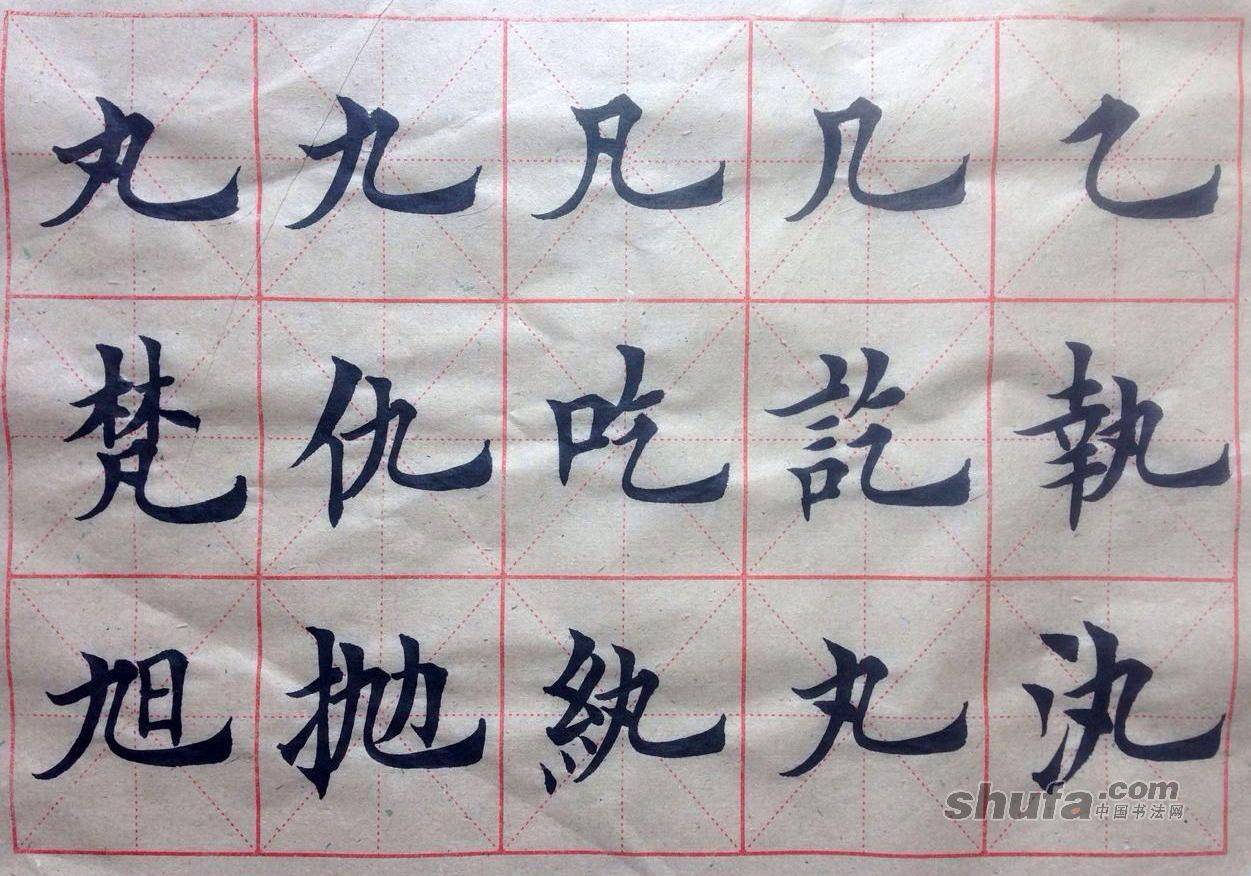 丸九凡几乙
梵仇吃訖執
旭抛紈丸汍
shufa.com
中国书法网